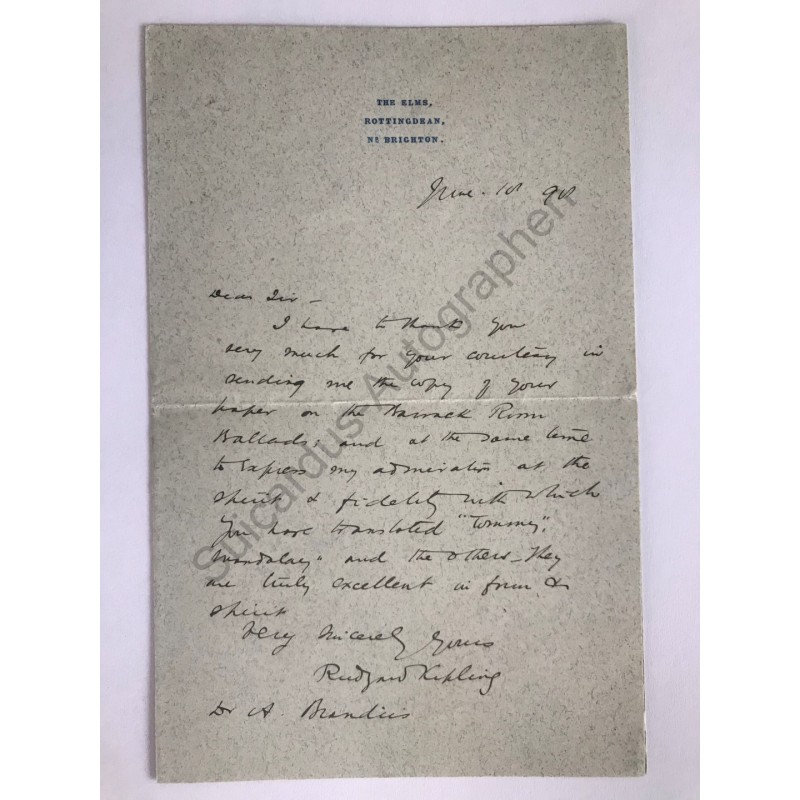 THE ELMS,
ROTTINGDEAN,
NR BRIGHTON.
June. 98
Dear Sir –
I have to thank you
very much for your courtesy in
sending me the copy of your
paper on the Barrack Room
Ballads; and at the same time
to express my admiration at the
spirit & fidelity with which
you have translated "Tommy",
Mandalay" and the others – They
are truly excellent in form &
spirit
Very sincerely yours
Rudyard Kipling
Dr A. Brandeis
Suicardus-Autographen